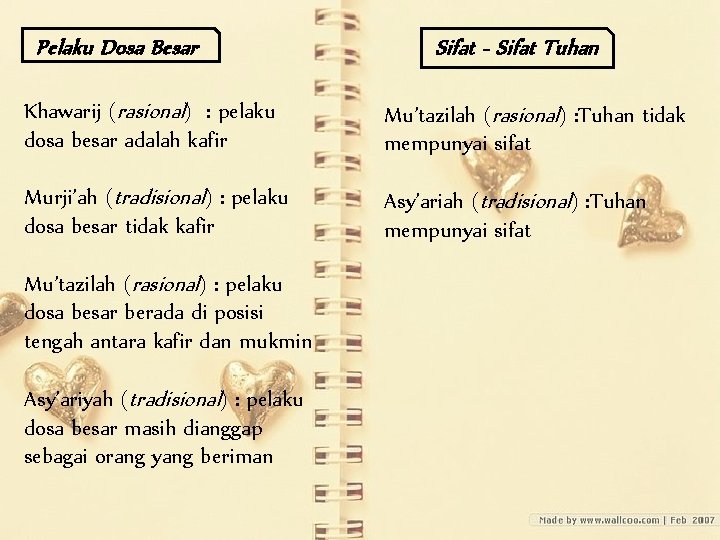 Pelaku Dosa Besar
Khawarij (rasional) : pelaku
dosa besar adalah kafir
Murji’ah (tradisional) : pelaku
dosa besar tidak kafir
Mu’tazilah (rasional) : pelaku
dosa besar berada di posisi
tengah antara kafir dan mukmin
Asy’ariyah (tradisional) : pelaku
dosa besar masih dianggap
sebagai orang yang beriman
Sifat - Sifat Tuhan
Mu’tazilah (rasional) : Tuhan tidak
mempunyai sifat
Asy’ariah (tradisional) : Tuhan
mempunyai sifat
Made by www.wallcoo.com | Feb 2007